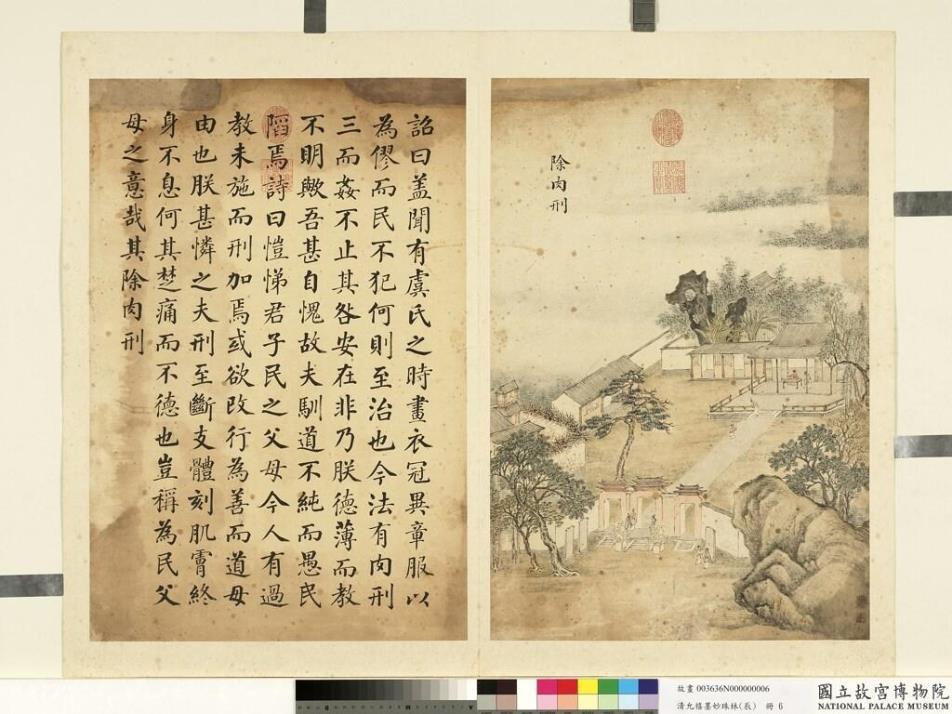 除肉刑
詔曰盖聞有虞氏之時畫衣冠異章服以
為僇而民不犯何則至治也今法有肉刑
三而姦不止其咎安在非乃朕德薄而教
不明歟吾甚自愧故夫馴道不純而愚民
陷焉詩曰愷悌君子民之父母今人有過
教未施而刑加焉或欲改行為善而道毋
由也朕甚憐之夫刑至斷支體刻肌膚終
身不息何其楚痛而不德也豈稱為民父
母之意哉其除肉刑
故畫 003636N000000006
清允禧墨妙珠林(辰) 冊 6
國立故宮博物院
NATIONAL PALACE MUSEUM